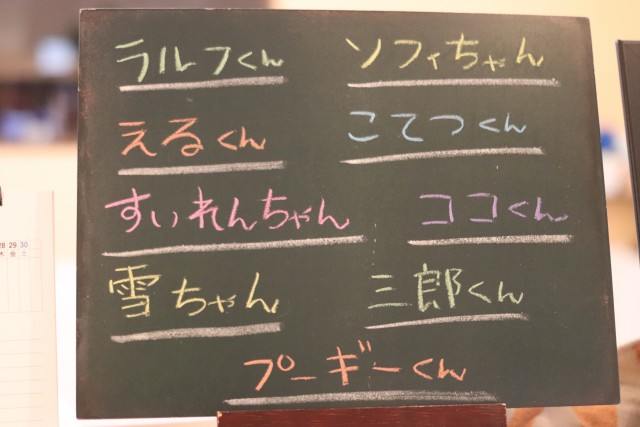 ラルフくん ソフィちゃん
えるくん こてつくん
すいれんちゃん ココくん
雪ちゃん 三郎くん
プーギーくん
28 29 30
木 金 土